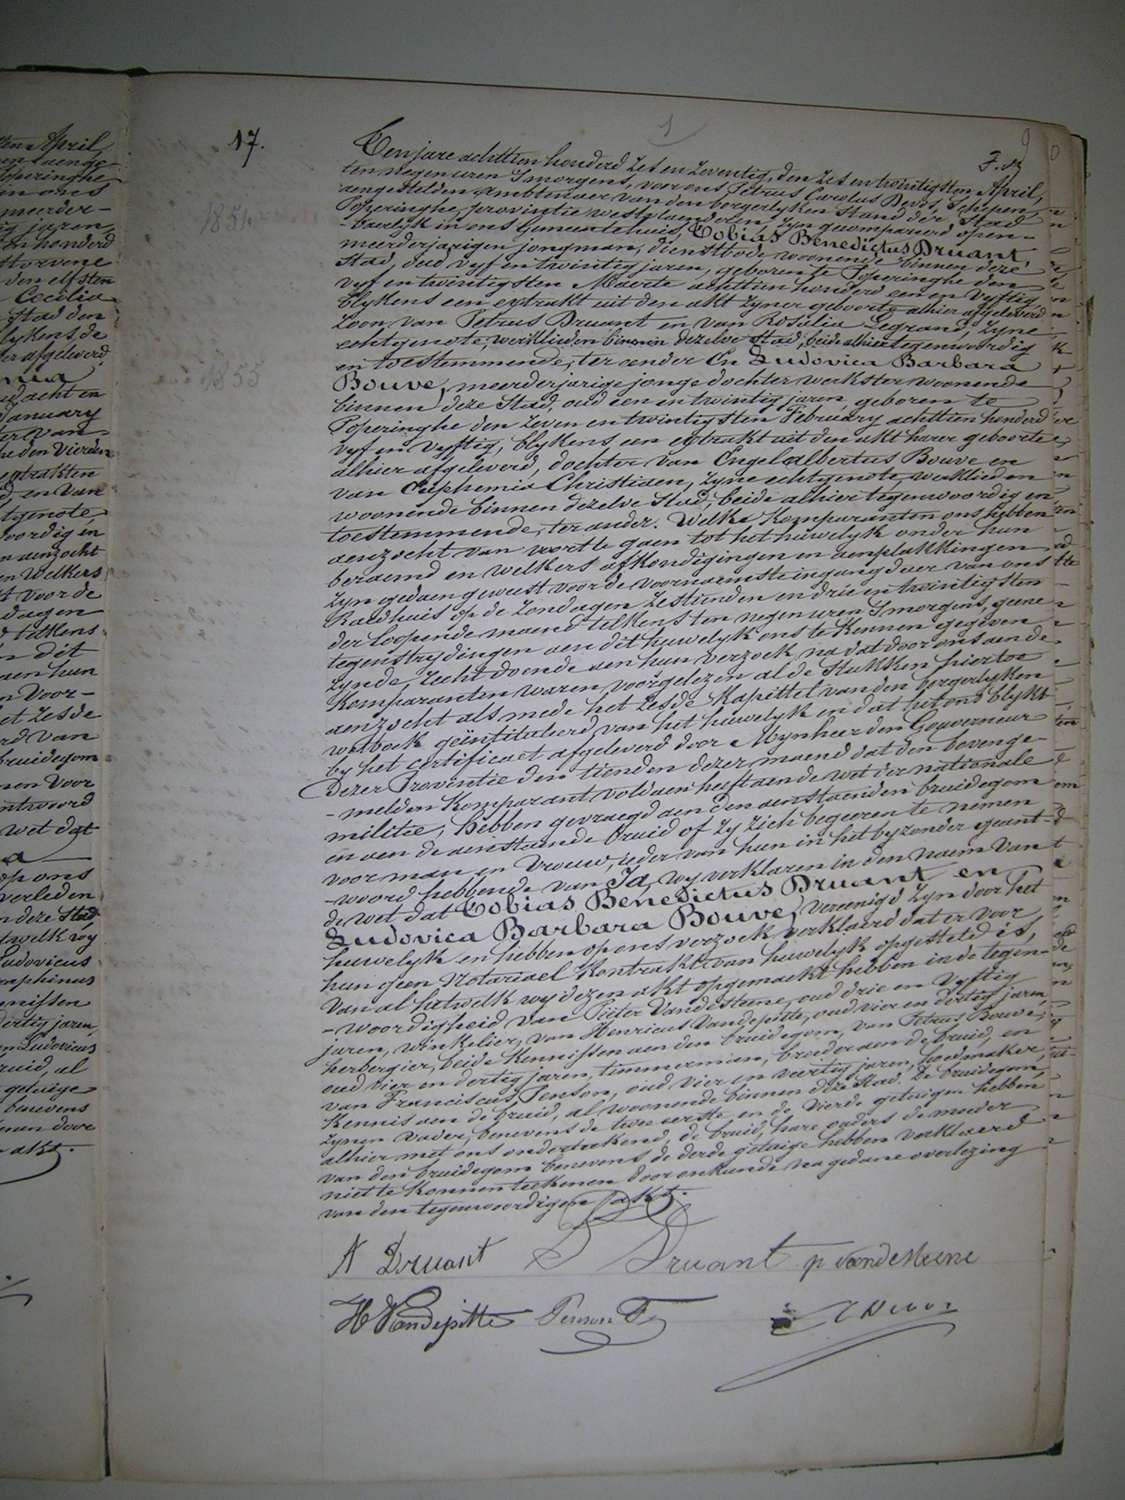 17.
1
F. 9
Ten jare achttien honderd zes en zeventig, den zes en twintigsten April,
ten negen uren 's morgens, voor ons Petrus Carolus Devos, Schepen,
aengestelden Ambtenaer van den borgerlyken Stand der Stad
Poperinghe, provintie westvlaenderen, zyn gecompareerd open-
-baerlyk in ons Gemeentehuis, Tobias Benedictus Druant,
meerderjarigen jongman, dienstbode, woonende binnen deze
Stad, oud vyf en twintig jaren, geboren te Poperinghe den
vyf en twintigsten Maerte achttien honderd een en vyftig
blykens een extrakt uit den akt zyner geboorte alhier afgeleverd
zoon van Petrus Druant en van Rosalia Legrand, zyne
echtgenote, werklieden binnen dezelve stad, beide alhier tegenwoordig
en toestemmende, ter eender En Ludovica Barbara
Bouve, meerderjarige jonge dochter werkster woonende
binnen deze Stad, oud een en twintig jaren, geboren te
Poperinghe den zeven en twintigsten February achttien honderd
vyf en vyftig, blykens een extrakt uit den akt harer geboorte
alhier afgeleverd, dochter van Engel Albertus Bouve en
van Euphemia Christiaen, zyne echtgenote, werklieden
woonende binnen dezelve Stad, beide alhier tegenwoordig en
toestemmende, ter ander. Welke Komparanten ons hebben
aenzocht van voort te gaen tot het huwelyk onder hun
beraemd en welkers afkondigingen en aenplakkingen
zyn gedaen geweest voor de voornaemste ingangdeur van ons
Raedhuis op de Zondagen zestienden en drie en twintigsten
der loopende maend telkens ten negen uren 's morgens, geene
tegenstrydingen aen dit huwelyk ons te kennen gegeven
zynde, recht doende aen hun verzoek na dat door ons aen de
Komparanten waren voorgelezen al de Stukken hiertoe
aenzocht als mede het zesde Kapittel van den borgerlyken
wetboek geïntituleerd van het huwelyk en dat het ons blykt
by het certificaet afgeleverd door Mynheer den Gouverneur
Dezer Provintie den tienden dezer maend dat den bovenge-
-melden Komparant voldaen heeft aen de wet der nationale
militie, hebben gevraegd aen den aenstaenden bruidegom
en aen de aenstaende bruid of zy zich begeeren te nemen
voor man en vrouw, ieder van hun in het byzonder geant-
-woord hebbende van Ja, wy verklaren in den naem van
de wet dat Tobias Benedictus Druant en
Ludovica Barbara Bouve, vereenigd zyn door het
huwelyk en hebben op ons verzoek verklaerd dat er voor
hun geen Notariael Kontrakt van huwelyk opgesteld is,
Van al hetwelk wy dezen akt opgemaekt hebben in de tegen-
-woordigheid van Pieter Vandesteene, oud drie en vyftig
jaren, winkelier, van Henricus Vandepitte, oud vier en dertig jaren,
herbergier, beide Kennissen aen den bruidegom, van Petrus Bouve,
oud vier en dertig jaren, timmerman, broeder aen de bruid, en
van Franciscus Penson, oud vier en veertig jaren, hoedmaker,
Kennis aen de bruid, al woonende binnen deze Stad. De bruidegom,
zynen vader, benevens de twee eerste en de vierde getuigen hebben
alhier met ons onderteekend, de bruid, hare ouders de moeder
van den bruidegom benevens de derde getuige hebben verklaerd
niet te konnen teekenen door onkunde na gedane overlezing
van den tegenwoordigen akt.
Druant Druant p vandesteene
H Vandepitte Penson F